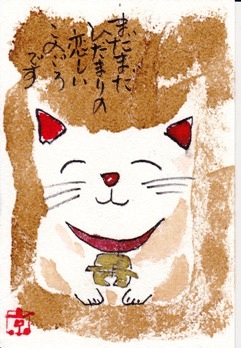 まだまだ
ひだまりの
恋しい
このごろ
です
京